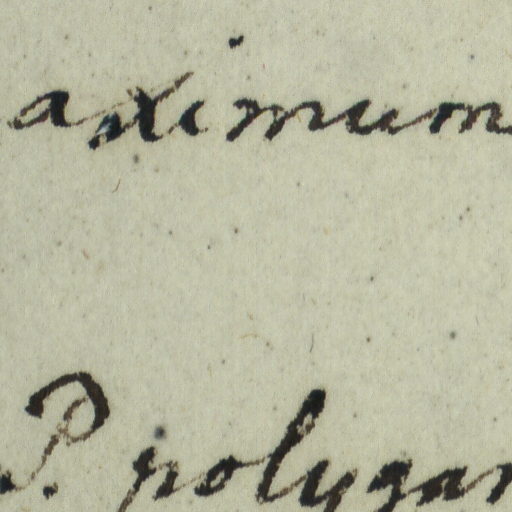 aximum
P. polygam